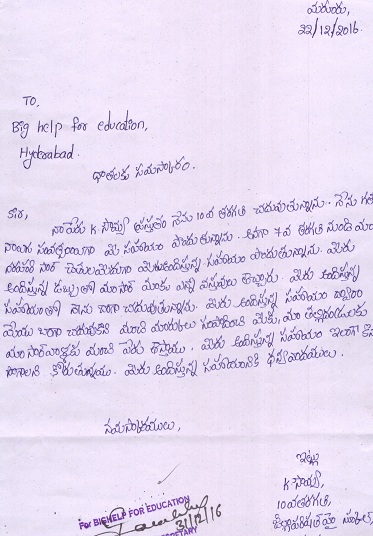 మరురు,
22/12/2016.
TO,
Big help for education,
Hyderabad.
దాతలకు నమస్కారం.
Sir,
నా పేరు K. సౌమ్య ప్రస్తుతం నేను 10వ తరగతి చదువుతున్నాను. నేను గత
నాలుగు సంవత్సరాలుగా మీ సహాయం పొందుతున్నాను. అనగా 7వ తరగతి నుండి మా
సార్ మీరు అందిస్తున్న సహాయం పొందుతున్నాను. మీరు
అందిస్తున్న డబ్బుతో మా సార్ మాకు ఎన్నో వస్తువులు తెచ్చారు. మీరు అందిస్తున్న
సహాయంతో నాను బాగా చదువుతున్నాను. మీరు అందిస్తున్న సహాయం ద్వారా
మేము బాగా చదువుకొని మంచి మార్కులు సంపాదించి మీకు, మా తల్లిదండ్రులకు
మా సార్ వాళ్ళకు మంచి పేరు తెస్తాము. మీరు అందిస్తున్న సహాయం ఇలాగే
సాగాలని కోరుతున్నాము. మీరు అందిస్తున్న సహాయానికి ధన్యవాదములు.
నమస్కారములు,
ఇట్లు
K. సౌమ్య,
10వ తరగతి,
జిల్లా పరిషత్ హై స్కూల్,
For BIGHELP FOR EDUCATION
31/12/16
SECRETARY